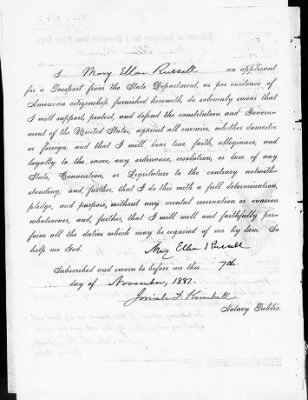 I Mary Ellen Russell an applicant
for a Passport from the State Department, as per evidence of
American citizenship furnished herewith, do solemnly swear that
I will support, protect, and defend the constitution and Govern-
ment of the United States, against all enemies, whether domestic
or foreign, and that I will bear true faith, allegiance, and
loyalty to the same, any ordinance, resolution, or law of any
State, Convention, or Legislature to the contrary notwith-
standing; and, further, that I do this with a full determination,
pledge, and purpose, without any mental reservation or evasion
whatsoever, and, further, that I will well and faithfully per-
form all the duties which may be required of me by law. So
help me God.
Mary Ellen Russell
Subscribed and sworn to before me this 7th
day of November, 1882.
Josiah L. Kimball
Notary Public.